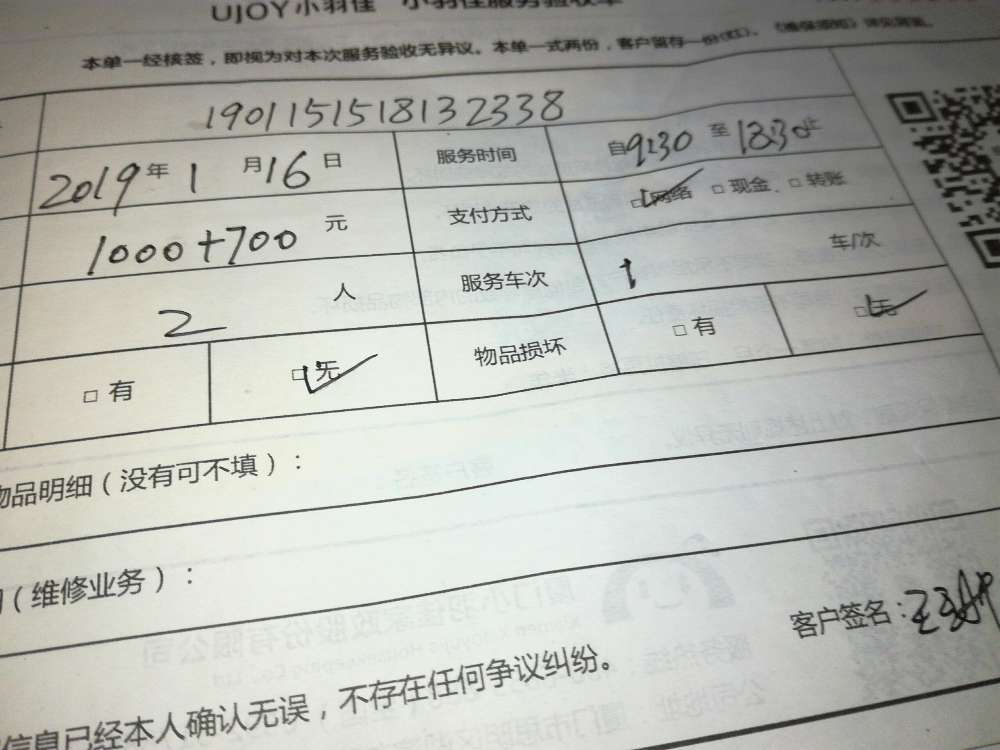 UJOY小羽佳 小羽佳服务验收单
本单一经核签，即视为对本次服务验收无异议。本单一式两份，客户留存一份(红)。《维保须知》详见背面。
1901151518132338
2019年1月16日 服务时间 自9:30至18:30止
1000+700元 支付方式 □网络 □现金 □转账
2人 服务车次 1车/次
□有 □无 物品损坏 □有 □无
物品明细（没有可不填）：
（维修业务）：
客户签名：
信息已经本人确认无误，不存在任何争议纠纷。